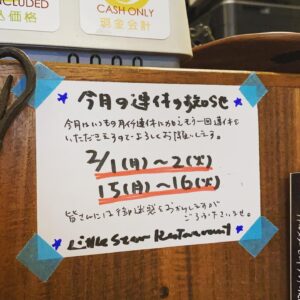 INCLUDED
込価格
CASH ONLY
現金会計
今月の連休のお知らせ
今月はいつもの月代連休に加えもう一回連休を
いただきますのでよろしくお願いします。
2/1(月)~2(火)
15(月)~16(火)
皆さんには御迷惑をおかけしますが
ございませ。
Little Star Restaurant